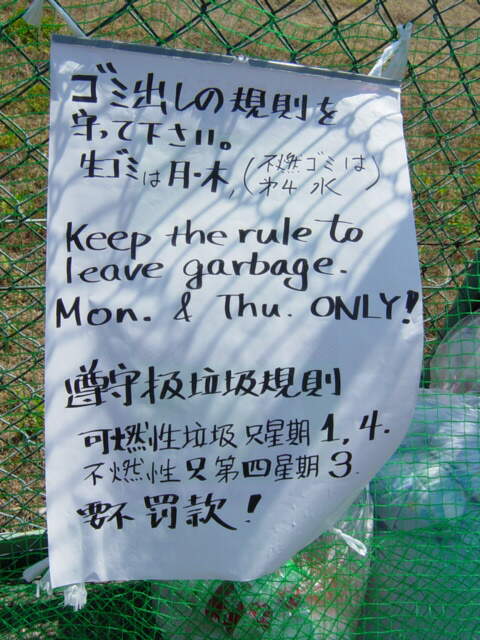 ゴミ出しの規則を
守って下さい。
生ゴミは月・木,(不燃ゴミは
オ4 水)
Keep the rule to
leave garbage.
Mon. & Thu. ONLY!
遵守扱垃圾規則
可燃性垃圾只星期1,4.
不燃性只第四星期3.
要不罰款!